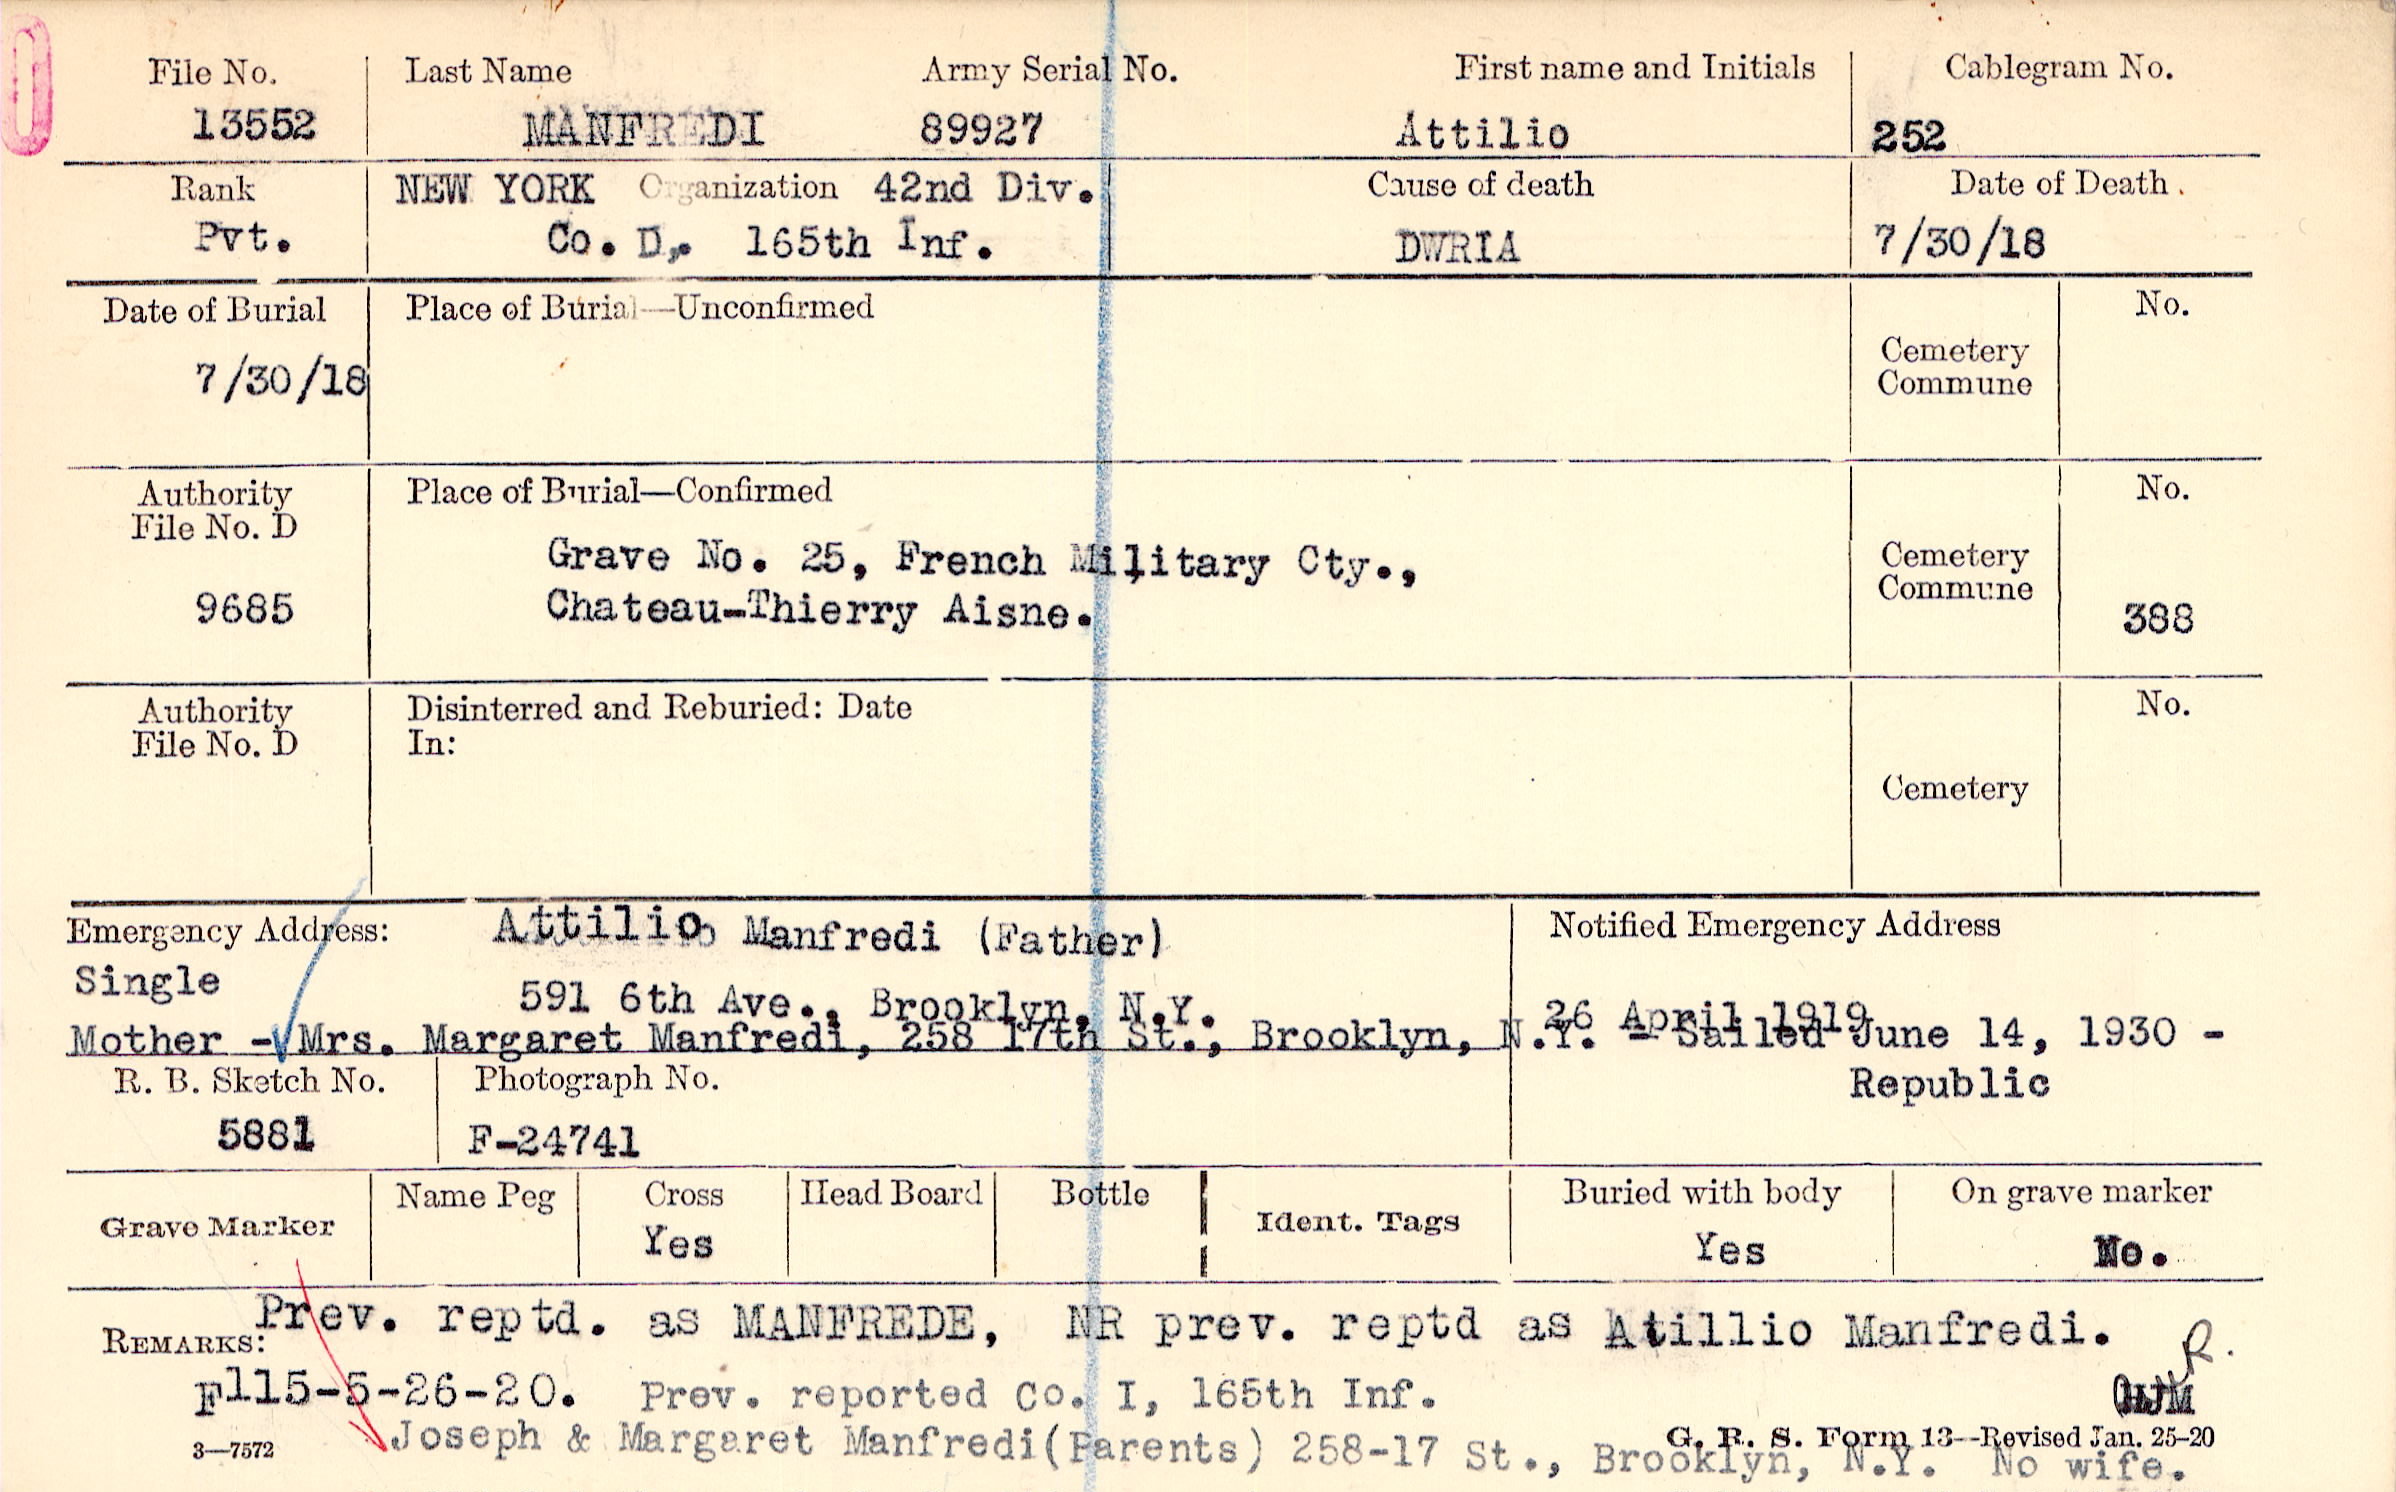 File No. Last Name Army Serial No. First name and Initials Cablegram No.
13552 MANFREDI 89927 Attilio 252
Rank NEW YORK Organization 42nd Div. Cause of death Date of Death.
Pvt. Co. D, 165th Inf. DWRIA 7/30/18
Date of Burial Place of Burial—Unconfirmed No.
7/30/18 Cemetery
Commune
Authority Place of Burial—Confirmed No.
File No. D
Grave No. 25, French Military Cty., Cemetery
Commune
9685 Chateau-Thierry Aisne. 388
Authority Disinterred and Reburied: Date No.
File No. D In:
Cemetery
Emergency Address: Attilio Manfredi (Father) Notified Emergency Address
Single
591 6th Ave., Brooklyn, N.Y. 26 April 1919
Mother - Mrs. Margaret Manfredi, 258 17th St., Brooklyn, N.Y. - Sailed June 14, 1930 -
R. B. Sketch No. Photograph No. Republic
5881 F-24741
Grave Marker Name Peg Cross Head Board Bottle Ident. Tags Buried with body On grave marker
Yes Yes No.
Prev. reptd. as MANFREDE, NR prev. reptd as Atillio Manfredi.
REMARKS:
R.
F115-5-26-20. Prev. reported Co. I, 165th Inf.
3—7572 Joseph & Margaret Manfredi(Parents) 258-17 St., Brooklyn, N.Y. No wife.
G. R. S. Form 13—Revised Jan. 25-20